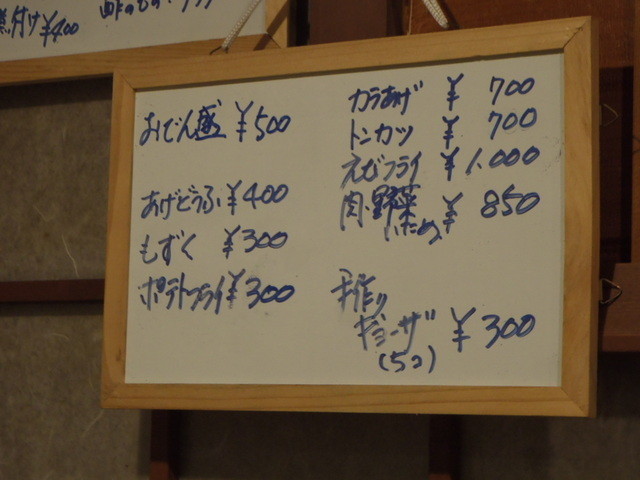 付け ¥400
おでん盛 ¥500
あげどうふ ¥400
もずく ¥300
ポテトフライ ¥300
カラあげ ¥700
トンカツ ¥700
えびフライ ¥1,000
肉・野菜いため ¥850
手作り
ギョーザ ¥300
(5コ)